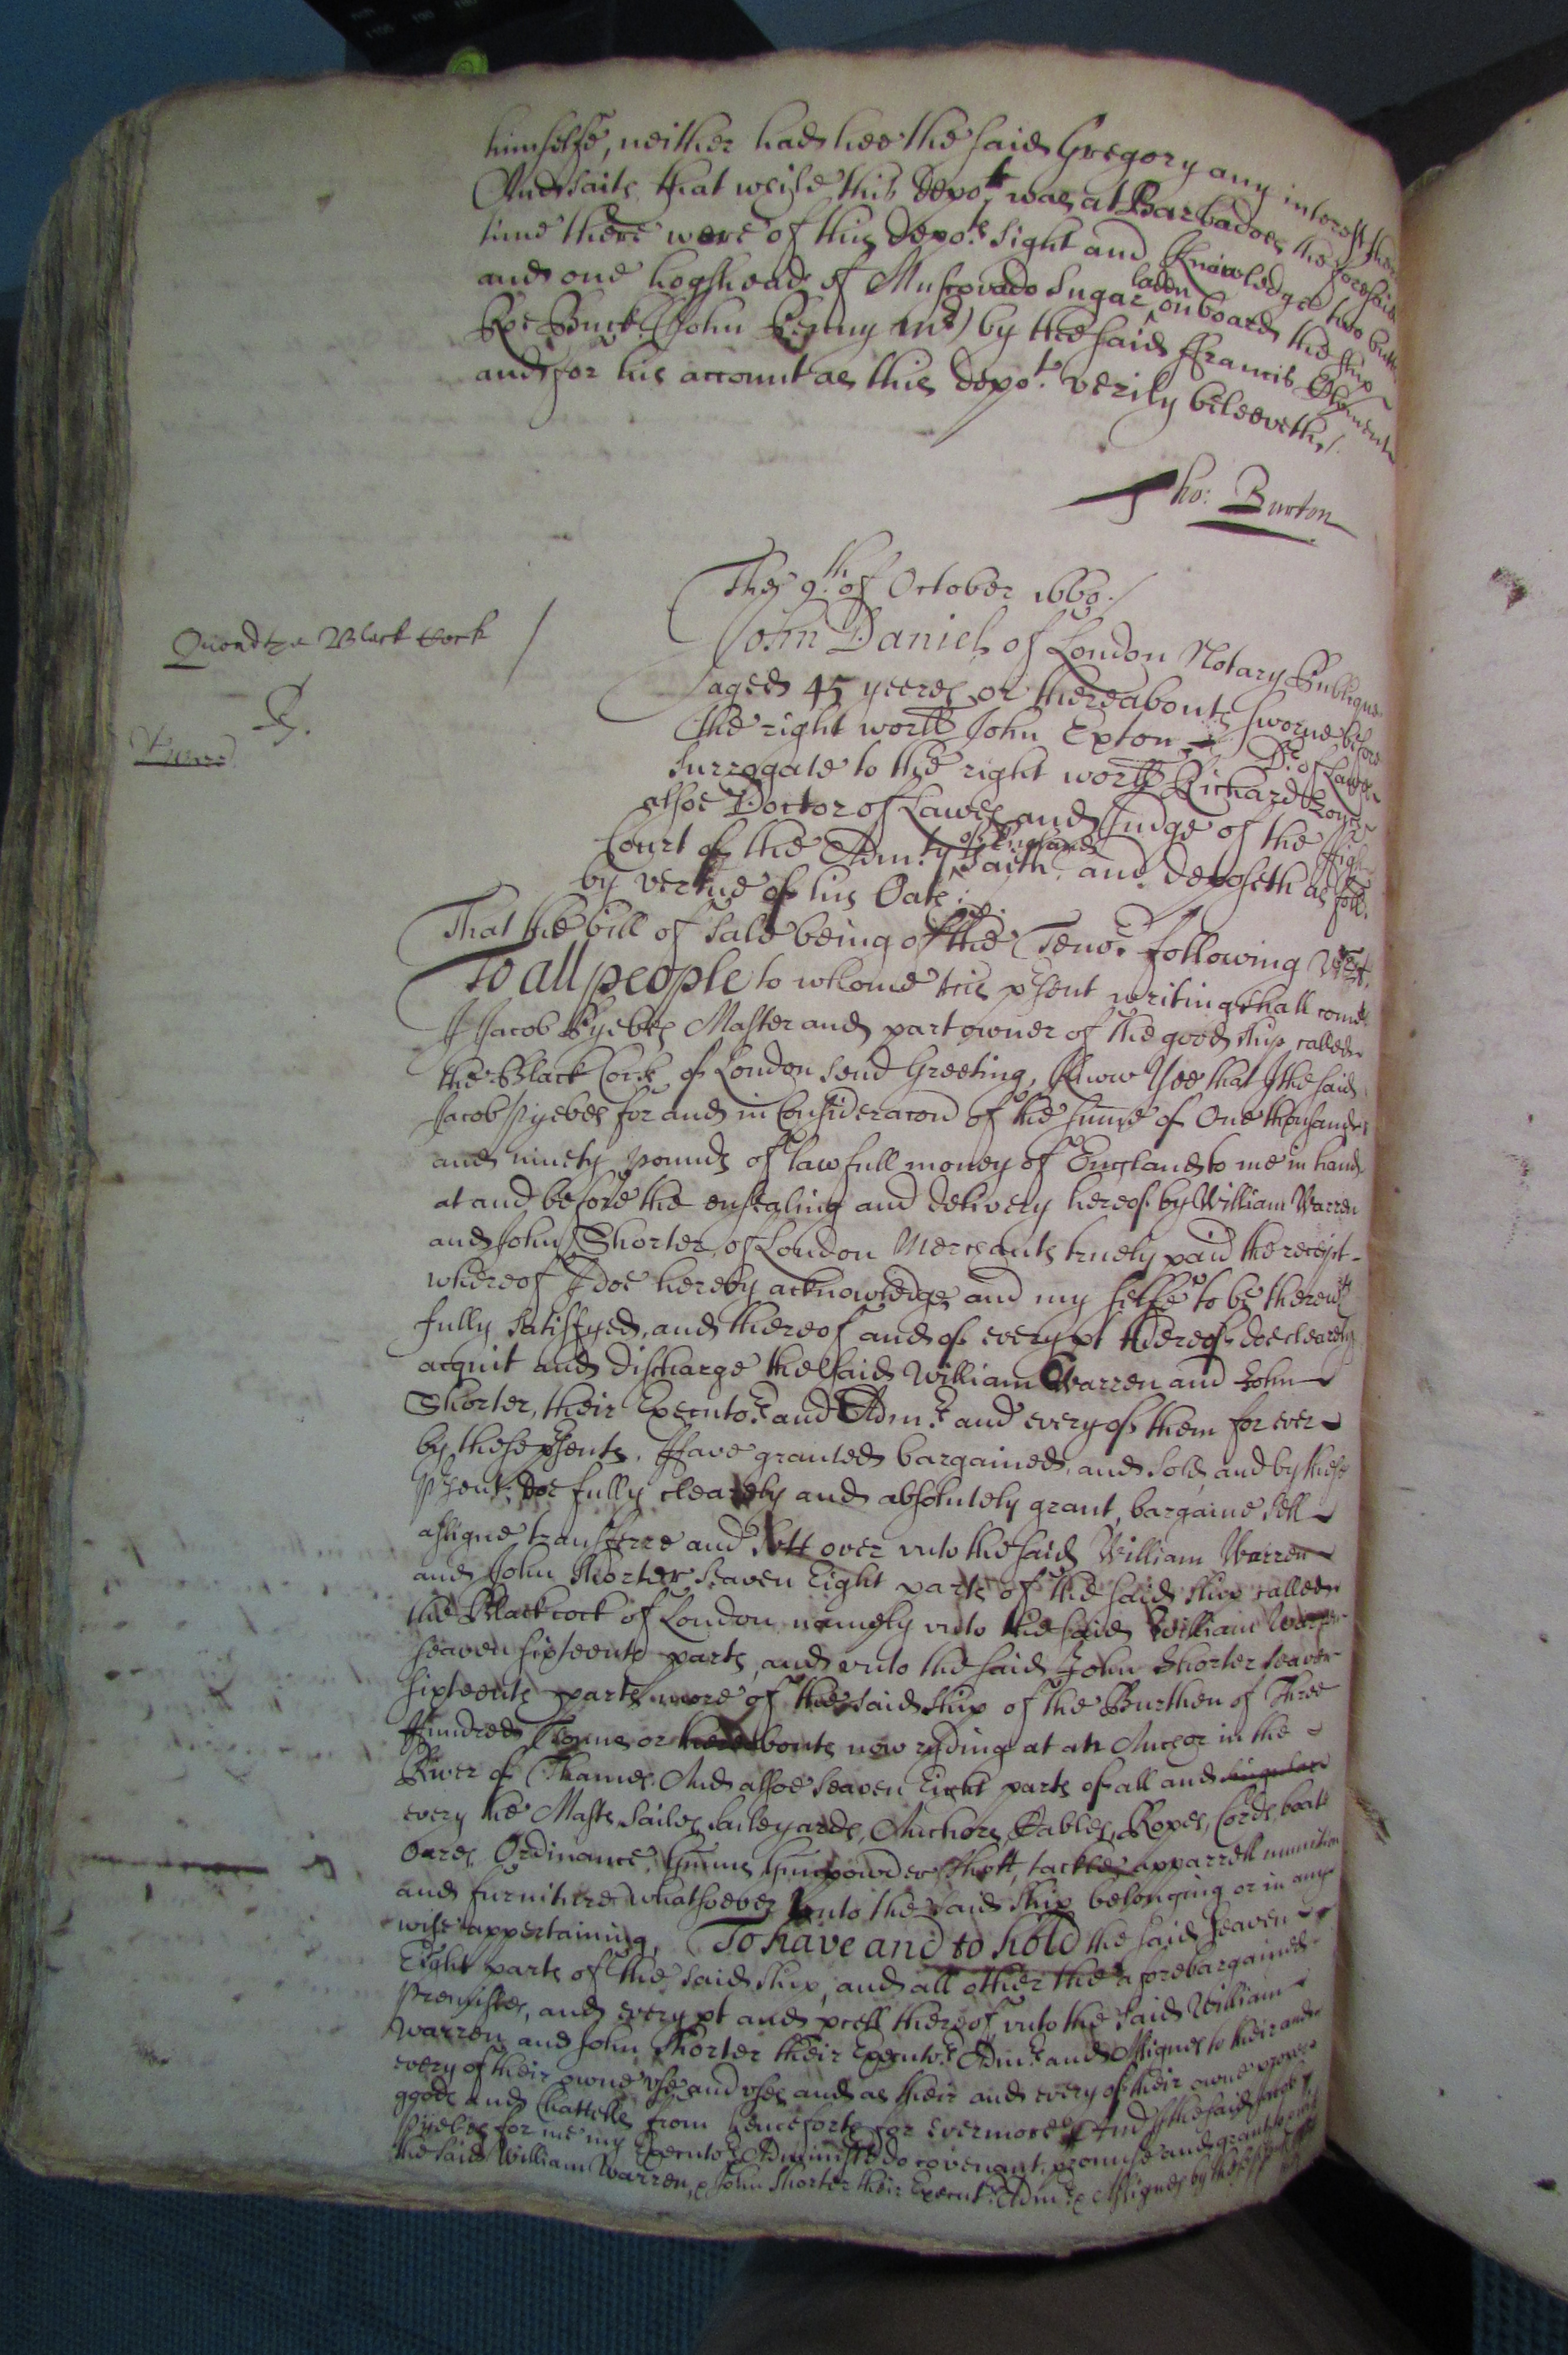 himselfe, neither had hee the said Gregory any interest then
And saith that whilse this depot was at Barbadoes the foresaid
time there were of this depots sight and knowledge two butts
and one hogshead of Muscovado Sugar laden on board the ship
Roe Buck (John Penny Mr) by the said ffrancis Clement
and for his account as this depot verily beleeveth./
Tho: Burton
The 9th of October 1660./
Quoad the Black Cock /
John Daniel of London Notary Publique
aged 45 yeeres or thereabouts sworne before
the right worll John Exton Dr of Lawes
Surrogate to the right worll Richard Zouch
alsoe Doctor of Lawes and Judge of the High
Court of the Admty of England saith and deposeth as foll.
by vertue of his Oath: vizt.
That the bill of sale being of the Tenor following Vizt.
To all people to whome this psent writing shall come
I Jacob Pyebes Master and part owner of the good ship called
the Black Cock of London send Greeting, Know Yee that I the said
Jacob Pyebes for and in Consideracon of the summe of One thousand
and ninety pounds of lawfull money of England to me in hand
at and before the ensealing and delivery hereof by William Warren
and John Shorter of London Merchants truely paid the receipt
whereof I doe hereby acknowledge and my selfe to be therewth
fully satisfyed, and thereof and of every pt thereof doe clearely
acquit and discharge the said William Warren and John
Shorter, their Executors and Admrs and every of them for ever
by these psents. Have granted bargained, and sold, and by these
psents doe fully clearely and absolutely grant, bargaine sell
assigne transferre and sett over unto the said William Warren
and John Shorter Seaven Eight parts of the said ship called
the Blackcock of London namely unto the said William Warren
seaven sixteenth parts, and unto the said John Shorter seaven
sixteenth parts more of the said ship of the Burthen of Three
Hundred Tonns or thereabouts now ryding at an Anchor in the
River of Thames. And alsoe Seaven Eight parts of all and singular
every the Masts, Sailes, saileyards, Anchors, Cables, Ropes, Cords, boate
Oares, Ordinance, Gunns, Gunpowder, Shott, tackle, apparrell munition
and furniture whatsoever unto the said ship belonging or in any
wise appertaining, To have and to hold the said seaven
Eight parts of the said ship, and all other the aforebargained
Premisses, and every pt and pcell thereof, unto the said William
Warren and John Shorter their Executors Admrs and Assignes to their and
every of their owne use and uses and as their and every of their owne proper
goods and Chattells from henceforth for evermore, And I the said Jacob
Pyebes for me my Executors Administrs do covenant, promise and grant to and wth
the said William Warren, & John Shorter their Executrs Admrs & Assignes by these psents